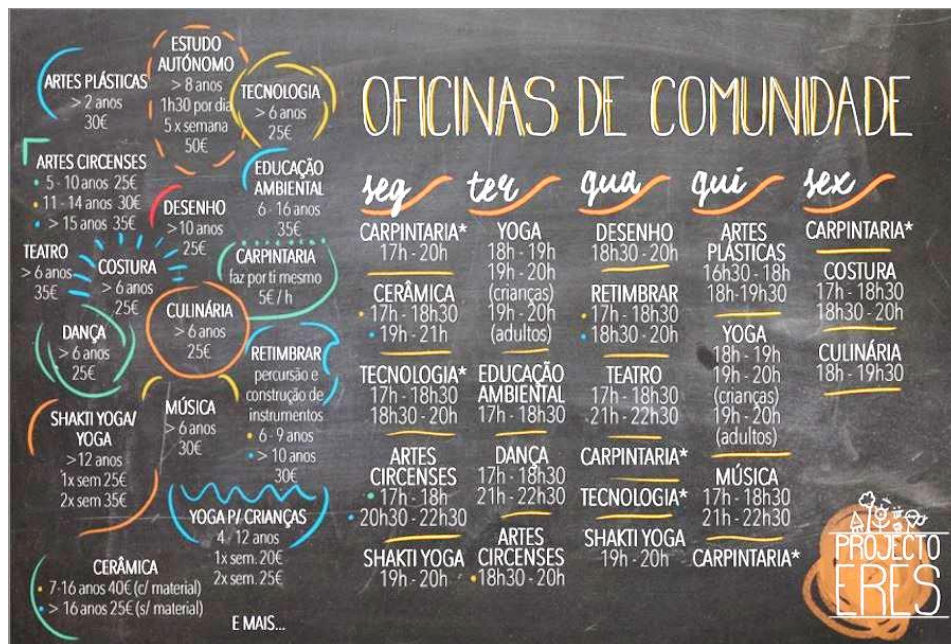 ESTUDO
AUTÓNOMO
> 8 anos
1h30 por dia
5 x semana
50€
ARTES PLÁSTICAS
> 2 anos
30€
TECNOLOGIA
> 6 anos
25€
ARTES CIRCENSES
• 5 - 10 anos 25€
• 11 - 14 anos 30€
• > 15 anos 35€
EDUCAÇÃO
AMBIENTAL
6 - 16 anos
35€
DESENHO
>10 anos
25€
TEATRO
> 6 anos
35€
COSTURA
> 6 anos
25€
CARPINTARIA
faz por ti mesmo
5€ / h
CULINÁRIA
> 6 anos
25€
DANÇA
> 6 anos
25€
RETIMBRAR
percursão e
construção de
instrumentos
• 6 - 9 anos
• > 10 anos
30€
MÚSICA
> 6 anos
30€
SHAKTI YOGA/
YOGA
>12 anos
1x sem 25€
2x sem 35€
YOGA P/ CRIANÇAS
4 - 12 anos
1x sem. 20€
2x sem. 25€
CERÂMICA
• 7-16 anos 40€ (c/ material)
• > 16 anos 25€ (s/ material)
E MAIS...
OFICINAS DE COMUNIDADE
seg
CARPINTARIA*
17h - 20h
CERÂMICA
• 17h - 18h30
• 19h - 21h
TECNOLOGIA*
17h - 18h30
18h30 - 20h
ARTES
CIRCENSES
• 17h - 18h
• 20h30 - 22h30
SHAKTI YOGA
19h - 20h
ter
YOGA
18h - 19h
19h - 20h
(crianças)
19h - 20h
(adultos)
EDUCAÇÃO
AMBIENTAL
17h - 18h30
DANÇA
17h - 18h30
21h - 22h30
ARTES
CIRCENSES
• 18h30 - 20h
qua
DESENHO
18h30 - 20h
RETIMBRAR
• 17h - 18h30
• 18h30 - 20h
TEATRO
17h - 18h30
21h - 22h30
CARPINTARIA*
TECNOLOGIA*
SHAKTI YOGA
19h - 20h
qui
ARTES
PLÁSTICAS
16h30 - 18h
18h-19h30
YOGA
18h - 19h
19h - 20h
(crianças)
19h - 20h
(adultos)
MÚSICA
17h - 18h30
21h - 22h30
CARPINTARIA*
sex
CARPINTARIA*
COSTURA
17h - 18h30
18h30 - 20h
CULINÁRIA
18h - 19h30
PROJECTO
ERES